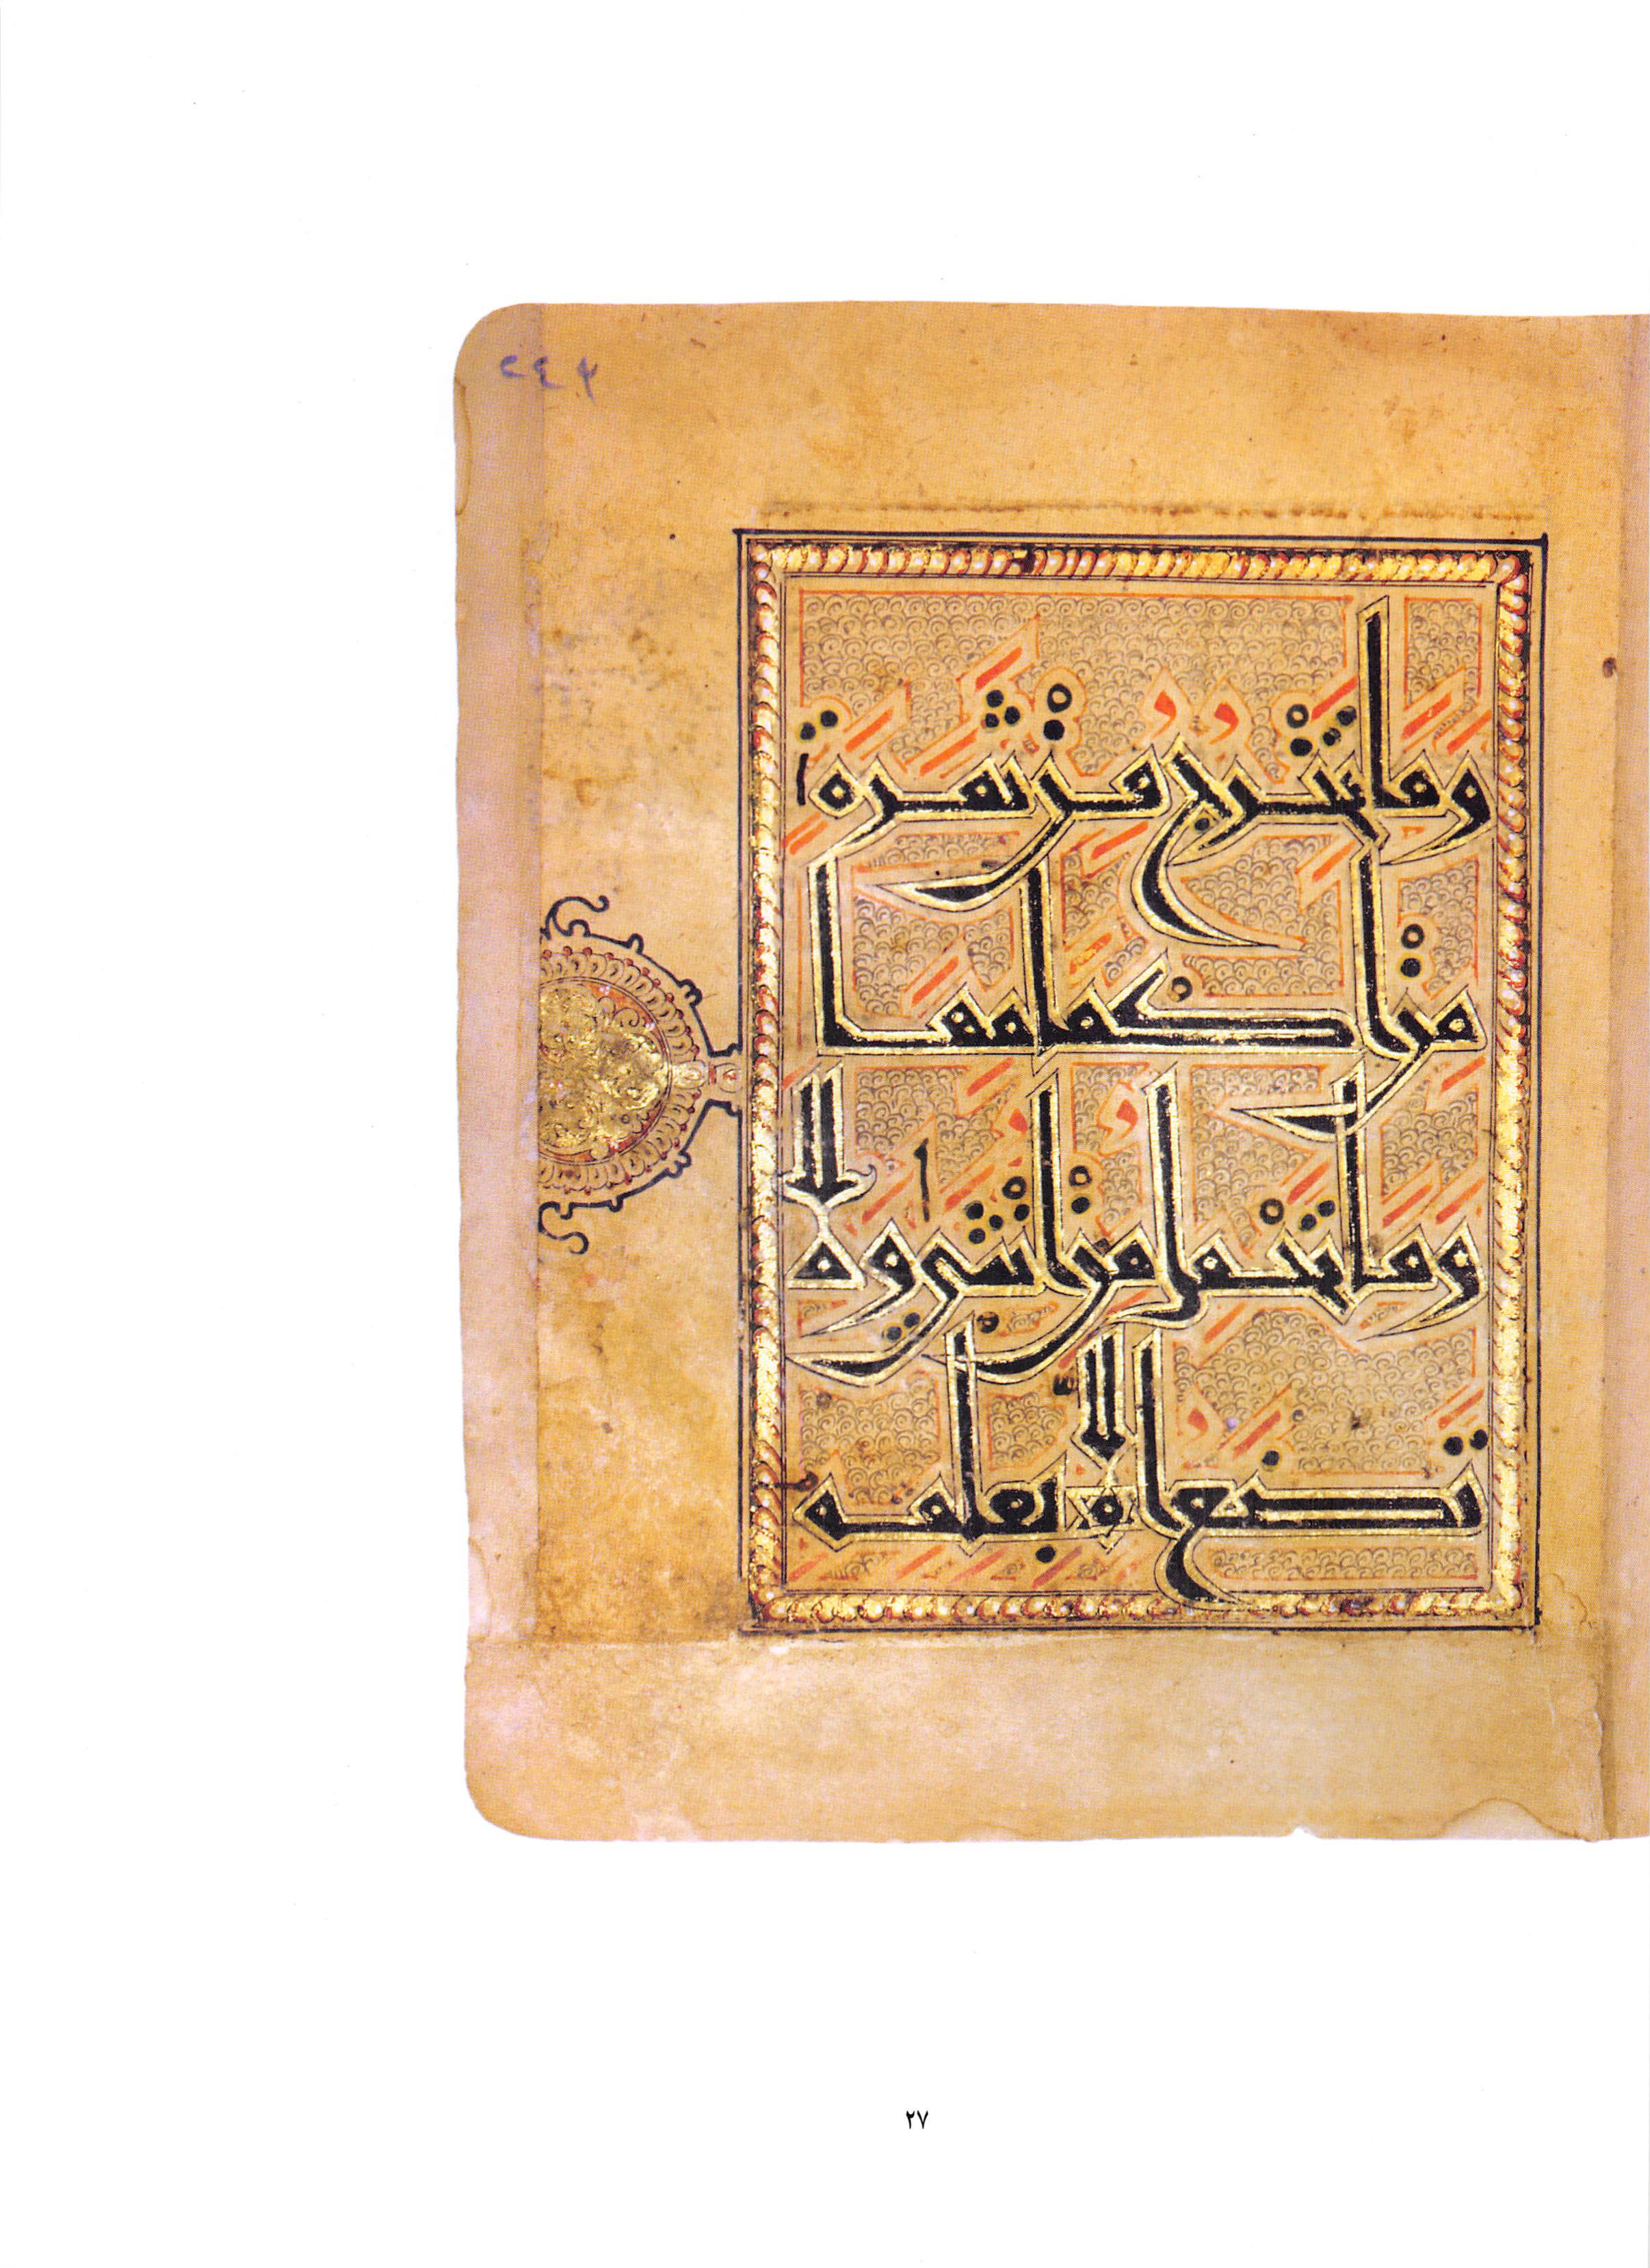 وما تخرج من ثمرة
من اكمامها
وما تحمل من انثى ولا
تضع الا بعلمه
٢٧